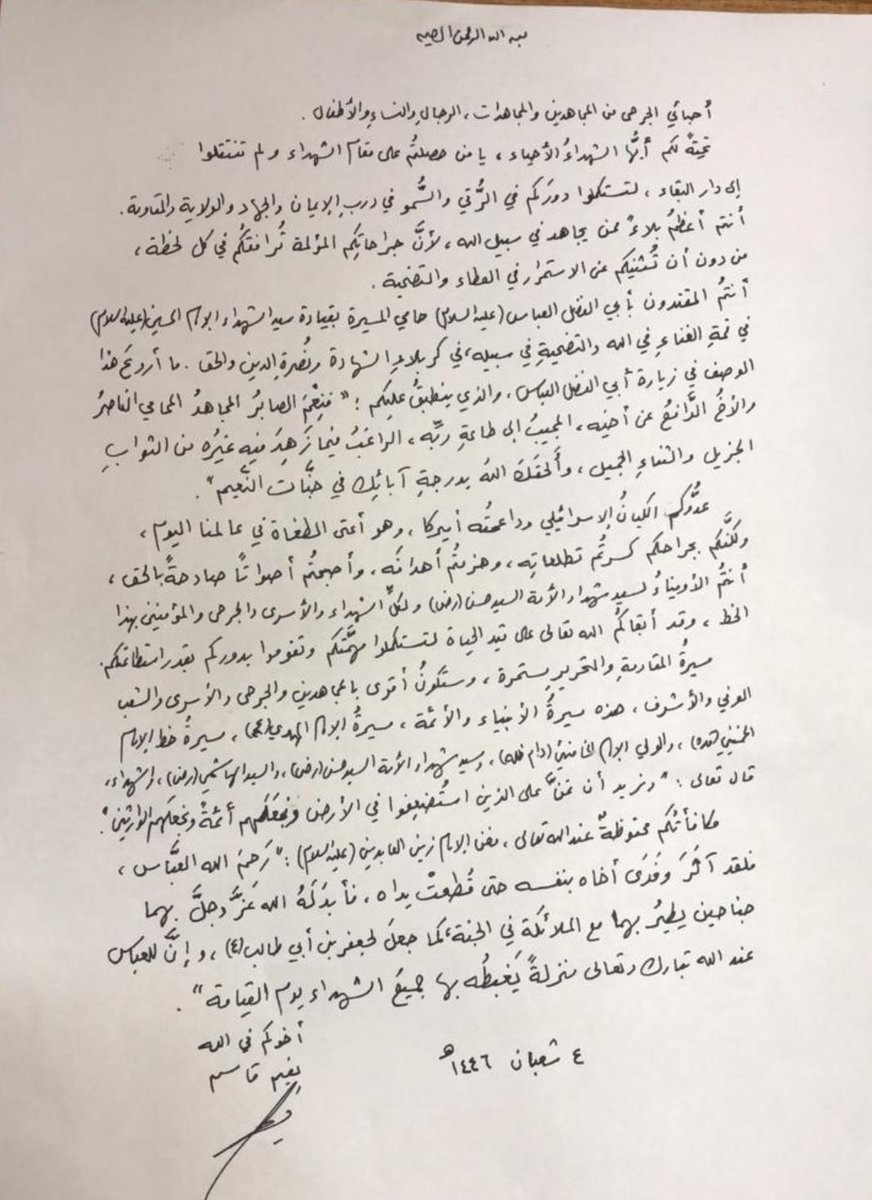 بسم الله الرحمن الرحيم
أحبائي الجرحى من المجاهدين والمجاهدات، الرجال والنساء والأطفال.
تحيةً لكم أيُّها الشهداءُ الأحياء، يا من حصلتُم على مقام الشهداء ولم تنتقلوا
إلى دار البقاء، لتستكملوا دورَكم في الرُّقي والسُّمو في درب الإيمان والجهاد والولاية والمقاومة.
أنتم أعظمُ بلاءً ممن يجاهد في سبيل الله، لأنَّ جراحاتِكم المؤلمة تُرافقُكُم في كل لحظة،
من دون أن تُثنيكم عن الاستمرار في العطاء والتضحية.
أنتمُ المقتدون بأبي الفضل العباس (عليه السلام) حامي المسيرة بقيادة سيد الشهداء الإمام الحسين (عليه السلام)
في قمةِ الفناءِ في الله والتضحيةِ في سبيله، في كربلاءِ الشهادة ونُصرةِ الدين والحق. ما أروعَ هذا
الوصف في زيارة أبي الفضل العباس، والذي ينطبقُ عليكم: "فنِعْمَ الصابرُ المجاهدُ المحامي الناصرُ
والأخُ الدَّافعُ عن أخيه، المجيبُ إلى طاعةِ ربِّه، الراغبُ فيما زَهِدَ فيه غيرُه من الثوابِ
الجزيل والثناءِ الجميل، وأَلحَقَكَ اللهُ بدرجةِ آبائِك في جنَّات النَّعيم".
عدُوُّكم الكيانُ الإسرائيلي وداعمتُه أميركا، وهو أعتى الطغاة في عالمنا اليوم،
ولكنَّكم بجراحكم كسرتُم تطلعاتِه، وهزمتُم أهدافَه، وأصبحتُم أصواتاً صادحةً بالحق،
أنتمُ الأوفياءُ لسيد شهداء الأمة السيد حسن (رض) ولكلِّ الشهداء والأسرى والجرحى والمؤمنين بهذا
الخط، وقد أبقاكُم الله تعالى على قيد الحياة لتستكملوا مهمَّتكم وتقوموا بدوركم بقدر استطاعتكم.
مسيرةُ المقاومةِ والتحريرِ مستمرة، وستكونُ أقوى بالمجاهدين والجرحى والأسرى والشعب
الوفي والأشرف، هذه مسيرةُ الأنبياء والأئمة، مسيرةُ الإمام المهدي (عج)، مسيرةُ خط الإمام
الخميني (قده)، والولي الإمام الخامنئي (دام ظله)، وسيد شهداء الأمة السيد حسن (رض)، والسيد الهاشمي (رض)، والشهداء،
قال تعالى: "ونريد أن نمنَّ على الذين استُضعِفوا في الأرض ونجعَلَهم أئمةً ونجعلَهم الوارثين".
مكافأتُكم محفوظةٌ عند الله تعالى، فعن الإمام زين العابدين (عليه السلام): "رَحِمَ الله العبَّاس،
فلقد آثَرَ وفَدَى أخاه بنفسه حتى قُطعتْ يداه، فأبدَلَهُ الله عَزَّ وجلَّ بهما
جناحين يطيرُ بهما مع الملائكة في الجنة، كما جعلَ لجعفر بن أبي طالب (ع)، وإنَّ للعباس
عند الله تبارك وتعالى منزلةً يَغبِطُه بها جميعُ الشهداء يوم القيامة".
أخوكم في الله
نعيم قاسم
٤ شعبان ١٤٤٦هـ